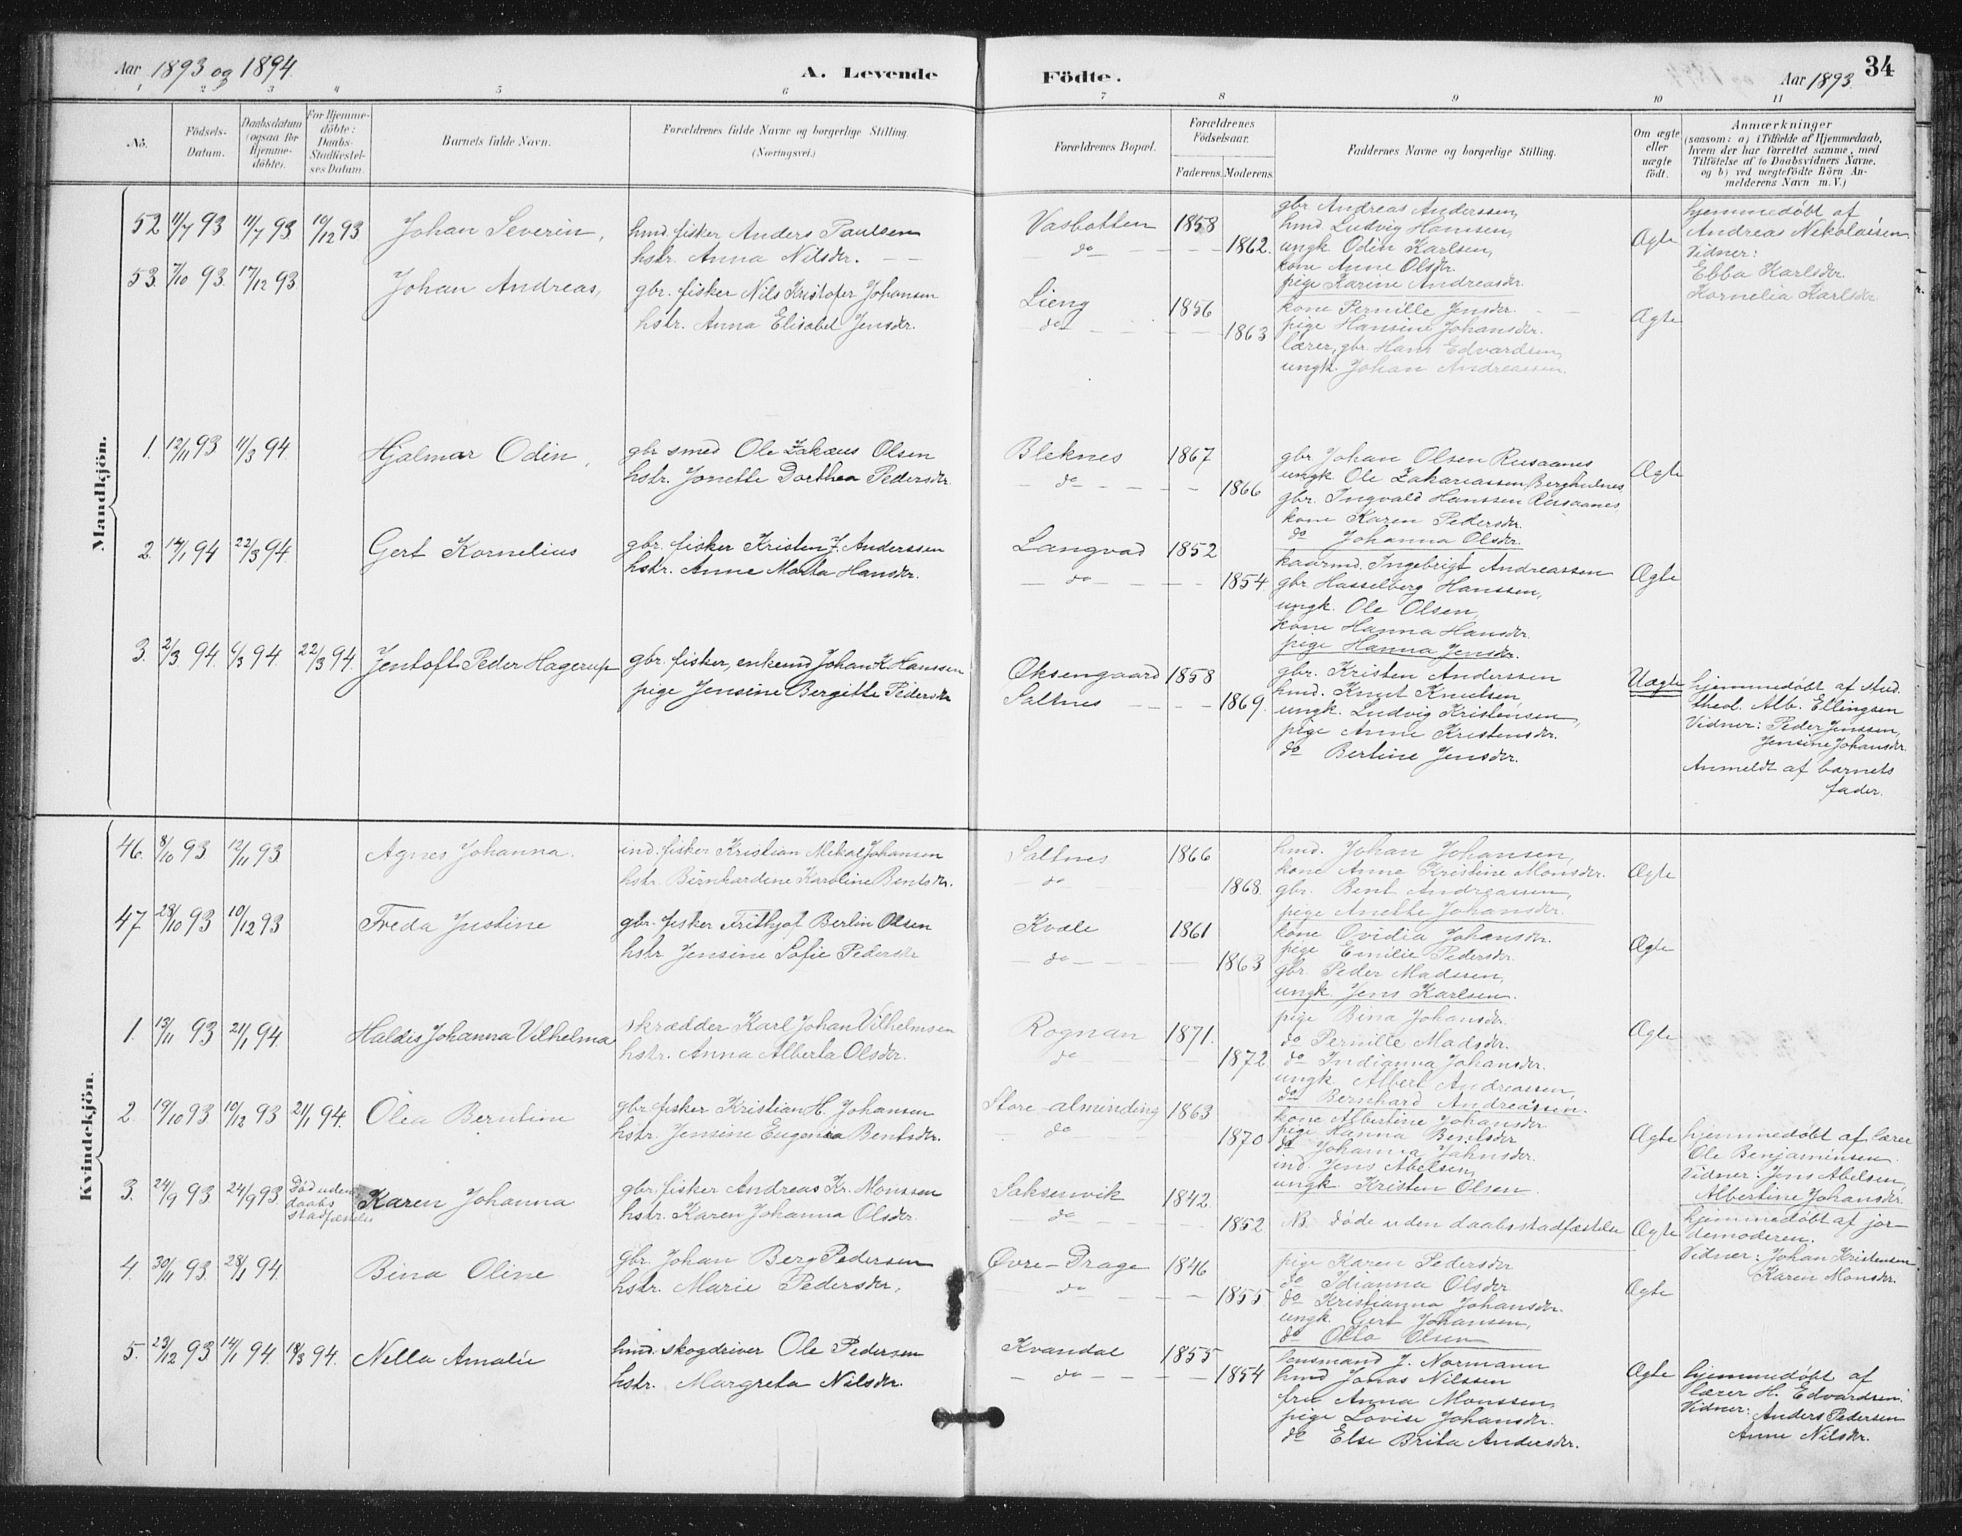 Aar 1893 og 1894.
A. Levende Födte.
Aar 1893.
34
1 2 3 4 5 6 7 8 9 10 11
No.
Födsels-Datum.
Daabsdatum (ogsaa for Hjemmedöbte).
For Hjemmedöbte: Daabs-Stadfæstelses Datum.
Barnets fulde Navn.
Forældrenes fulde Navne og borgerlige Stilling. (Næringsvei.)
Forældrenes Bopæl.
Forældrenes Födselsaar.
Faderens. Moderens.
Faddernes Navne og borgerlige Stilling.
Om ægte eller uægte født.
Anmærkninger
(saasom: a) i Tilfælde af Hjemmedaab, hvem der har forrettet samme, med Tilföielse af to Daabsvidners Navne, og b) ved uægtefödte Börn Anmelderens Navn m. V.)
Mandkjön.
52 11/7 93 11/7 93 10/12 93 Johan Severin,
hmd. fisker Anders Paulsen
hstr. Anna Nilsdr.
Vasbotten 1858
do 1862.
gbr Andreas Anderssen,
hmd Ludvig Hansen,
ungk Odin Karlsen,
kone Anne Olsdr.
pige Karine Andreasdr.
Ægte
hjemmedöbt af
Andreas Nekolaisen
Vidner:
Ebba Karlsdr.
Kornelia Karlsdr.
53. 7/10 93. 17/12 93 Johan Andreas,
gbr. fisker Nils Kristofer Johansen
hstr. Anna Elisabet Jensdr.
Lieng 1856
do 1863
kone Pernille Jensdr.
pige Hansine Johansdr.
lærer, gbr. Hans Edvardsen,
ungk. Johan Andreassen.
Ægte
1. 12/11 93 11/3 94. Hjalmar Odin,
gbr smed Ole Zakæus Olsen
hstr. Jonette Dorthea Pedersdr.
Bleknes 1867
do 1866
gbr Johan Olsen Rusaanes
ungk Ole Zakariassen Berghulnes
gbr. Ingvald Hanssen Rusaanes
kone Karen Pedersdr.
do Johanna Olsdr.
Ægte
2. 14/1 94 22/3 94. Gert Kornelius
gbr. fisker Kristen J. Anderssen
hstr. Anne Marta Hansdr.
Langvad 1852
do 1854.
kaarmd. Ingebrigt Andreassen
gbr Hasselberg Hanssen,
ungk. Ole Olsen,
kone Hanna Hansdr.
pige Hanna Jensdr.
Ægte
3. 2/3 94. 6/3 94 22/3 94. Jentoft Peder Hagerup
gbr. fisker, enkemd Johan K. Hanssen
pige Jensine Bergitte Pedersdr
Øksengaard 1858
Saltnes 1869.
gbr. Kristen Anderssen
hmd. Knut Knutsen
ungk. Ludvig Kristensen,
pige Anne Kristensdr.
do Bertine Jensdr.
Uægte
hjemmedöbt af stud.
theol. Alb. Ellingsen
Vidner: Peder Jenssen,
Jensine Johansdr.
Anmeldt af barnets
fader.
Kvindekjön.
46. 8/10 93 12/11 93 Agnes Johanna.
ind. fisker Kristian Mikal Johansen
hstr. Bernhardene Karoline Bentsdr.
Saltnes 1866
do 1868.
hmd. Johan Johansen,
kone Anne Kristine Monsdr.
gbr. Bent Andreassen,
pige Anette Johansdr.
Ægte
47 28/10 93 10/12 93 Freda Justine
gbr. fisker Frithjof Berlin Olsen
hstr Jensine Sofie Pedersdr
Kvæle 1861
do 1863
kone Ovidia Johansdr.
pige Emilie Pedersdr.
gbr. Peder Madssen,
ungk. Jens Karlsen.
Ægte
1. 13/11 93 21/1 94. Haldis Johanna Vilhelma
skrædder Karl Johan Vilhelmsen
hstr. Anna Alberta Olsdr.
Rognan 1871.
do 1872
pige Bina Johansdr.
do Pernille Madsdr.
do Indianna Johansdr.
ungk. Albert Andreassen,
do Bernhard Andreassen.
Ægte
2. 19/10 93 10/12 93 21/1 94. Olea Berntine
gbr fisker Kristian H. Johansen
hstr. Jensine Eugenia Bentsdr.
Store-alminding 1863
do 1870
kone Albertine Johansdr
pige Hanna Bentsdr
do Johanna Jahnsdr.
ind. Jens Abelsen,
ungk Kristen Olsen.
Ægte
hjemmedöbt af lærer
Ole Benjaminsen.
Vidner: Jens Abelsen,
Albertine Johansdr.
3. 24/9 93 24/9 93 Död uden daabs stadfæstelse Karen Johanna
gbr. fisker Andreas Kr. Monssen
hstr. Karen Johanna Olsdr.
Saksenvik 1842
do 1852.
NB. döde uden daabsstadfæstelse
Ægte
hjemmedöbt af jordemoderen.
Vidner: Johan Kristensen
Karen Monsdr.
4. 30/11 93. 28/1 94. Bina Oline
gbr. Johan Berg Pedersen
hstr. Marie Pedersdr.
Øvre-Drage 1846
do 1855
pige Karen Pedersdr
do Idianna Olsdr
do Kristianna Johansdr.
ungk. Gert Johansen,
do Otto Olsen
Ægte
5. 23/12 93 14/1 94. 18/3 94. Nella Amalie
hmd. skogdriver Ole Pedersen
hstr. Margreta Nilsdr.
Kvandal 1855
do 1854
lensmand J. Normann
hmd Jonas Nilssen
fru Anna Monssen,
pige Lovise Johansdr.
do Else Brita Andersdr.
Ægte
hjemmedöbt af
lærer H. Edvardsen.
Vidner: Anders Pedersen
Anne Nilsdr.